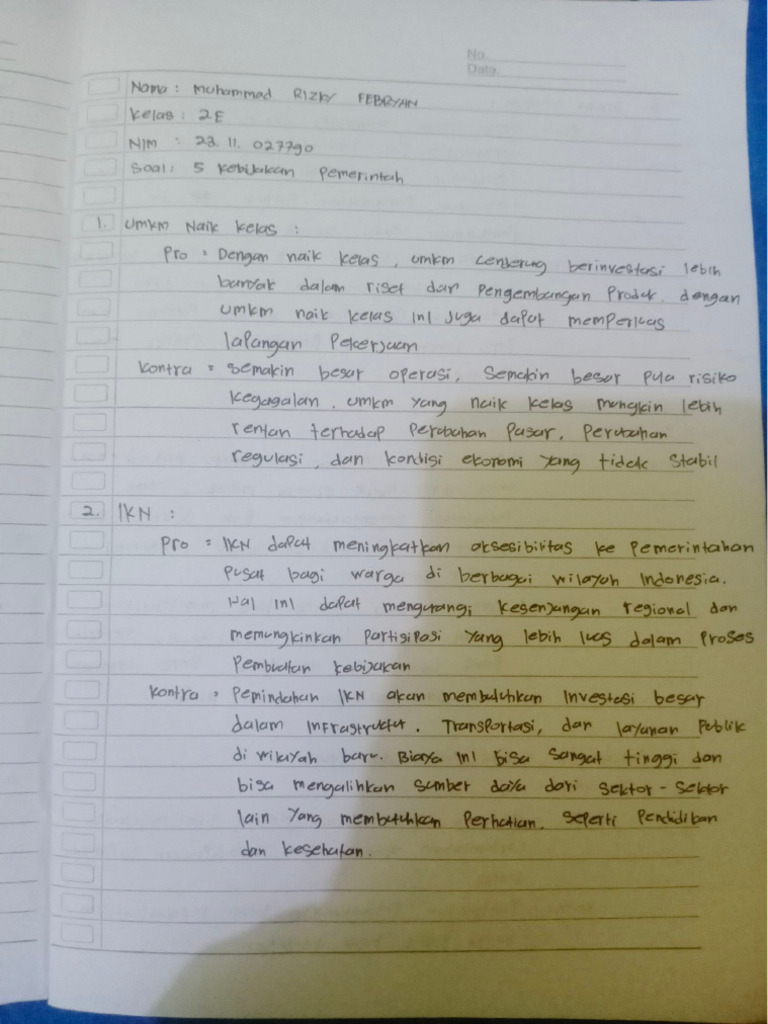 No.
Date.
Nama : Muhammad Rizky FEBRYAN
Kelas : 2E
NIM : 23.11.027790
Soal : 5 Kebijakan Pemerintah
1. UMKM Naik Kelas :
Pro = Dengan naik kelas, umkm cenderung berinvestasi lebih
banyak dalam riset dan Pengembangan Produk. dengan
UMKM naik kelas ini juga dapat memperluas
lapangan Pekerjaan
Kontra = Semakin besar operasi, Semakin besar pula risiko
kegagalan. umkm yang naik kelas mungkin lebih
rentan terhadap Perubahan Pasar, Perubahan
regulasi, dan kondisi ekonomi yang tidak Stabil
2. IKN :
Pro = IKN dapat meningkatkan aksesibilitas ke Pemerintahan
Pusat bagi warga di berbagai wilayah Indonesia.
Hal ini dapat mengurangi kesenjangan regional dan
memungkinkan Partisipasi yang lebih luas dalam Proses
Pembuatan kebijakan
Kontra = Pemindahan IKN akan membutuhkan Investasi besar
dalam Infrastruktur, Transportasi, dan layanan Publik
di wilayah baru. Biaya ini bisa sangat tinggi dan
bisa mengalihkan sumber daya dari sektor-sektor
lain yang membutuhkan Perhatian, seperti Pendidikan
dan kesehatan.